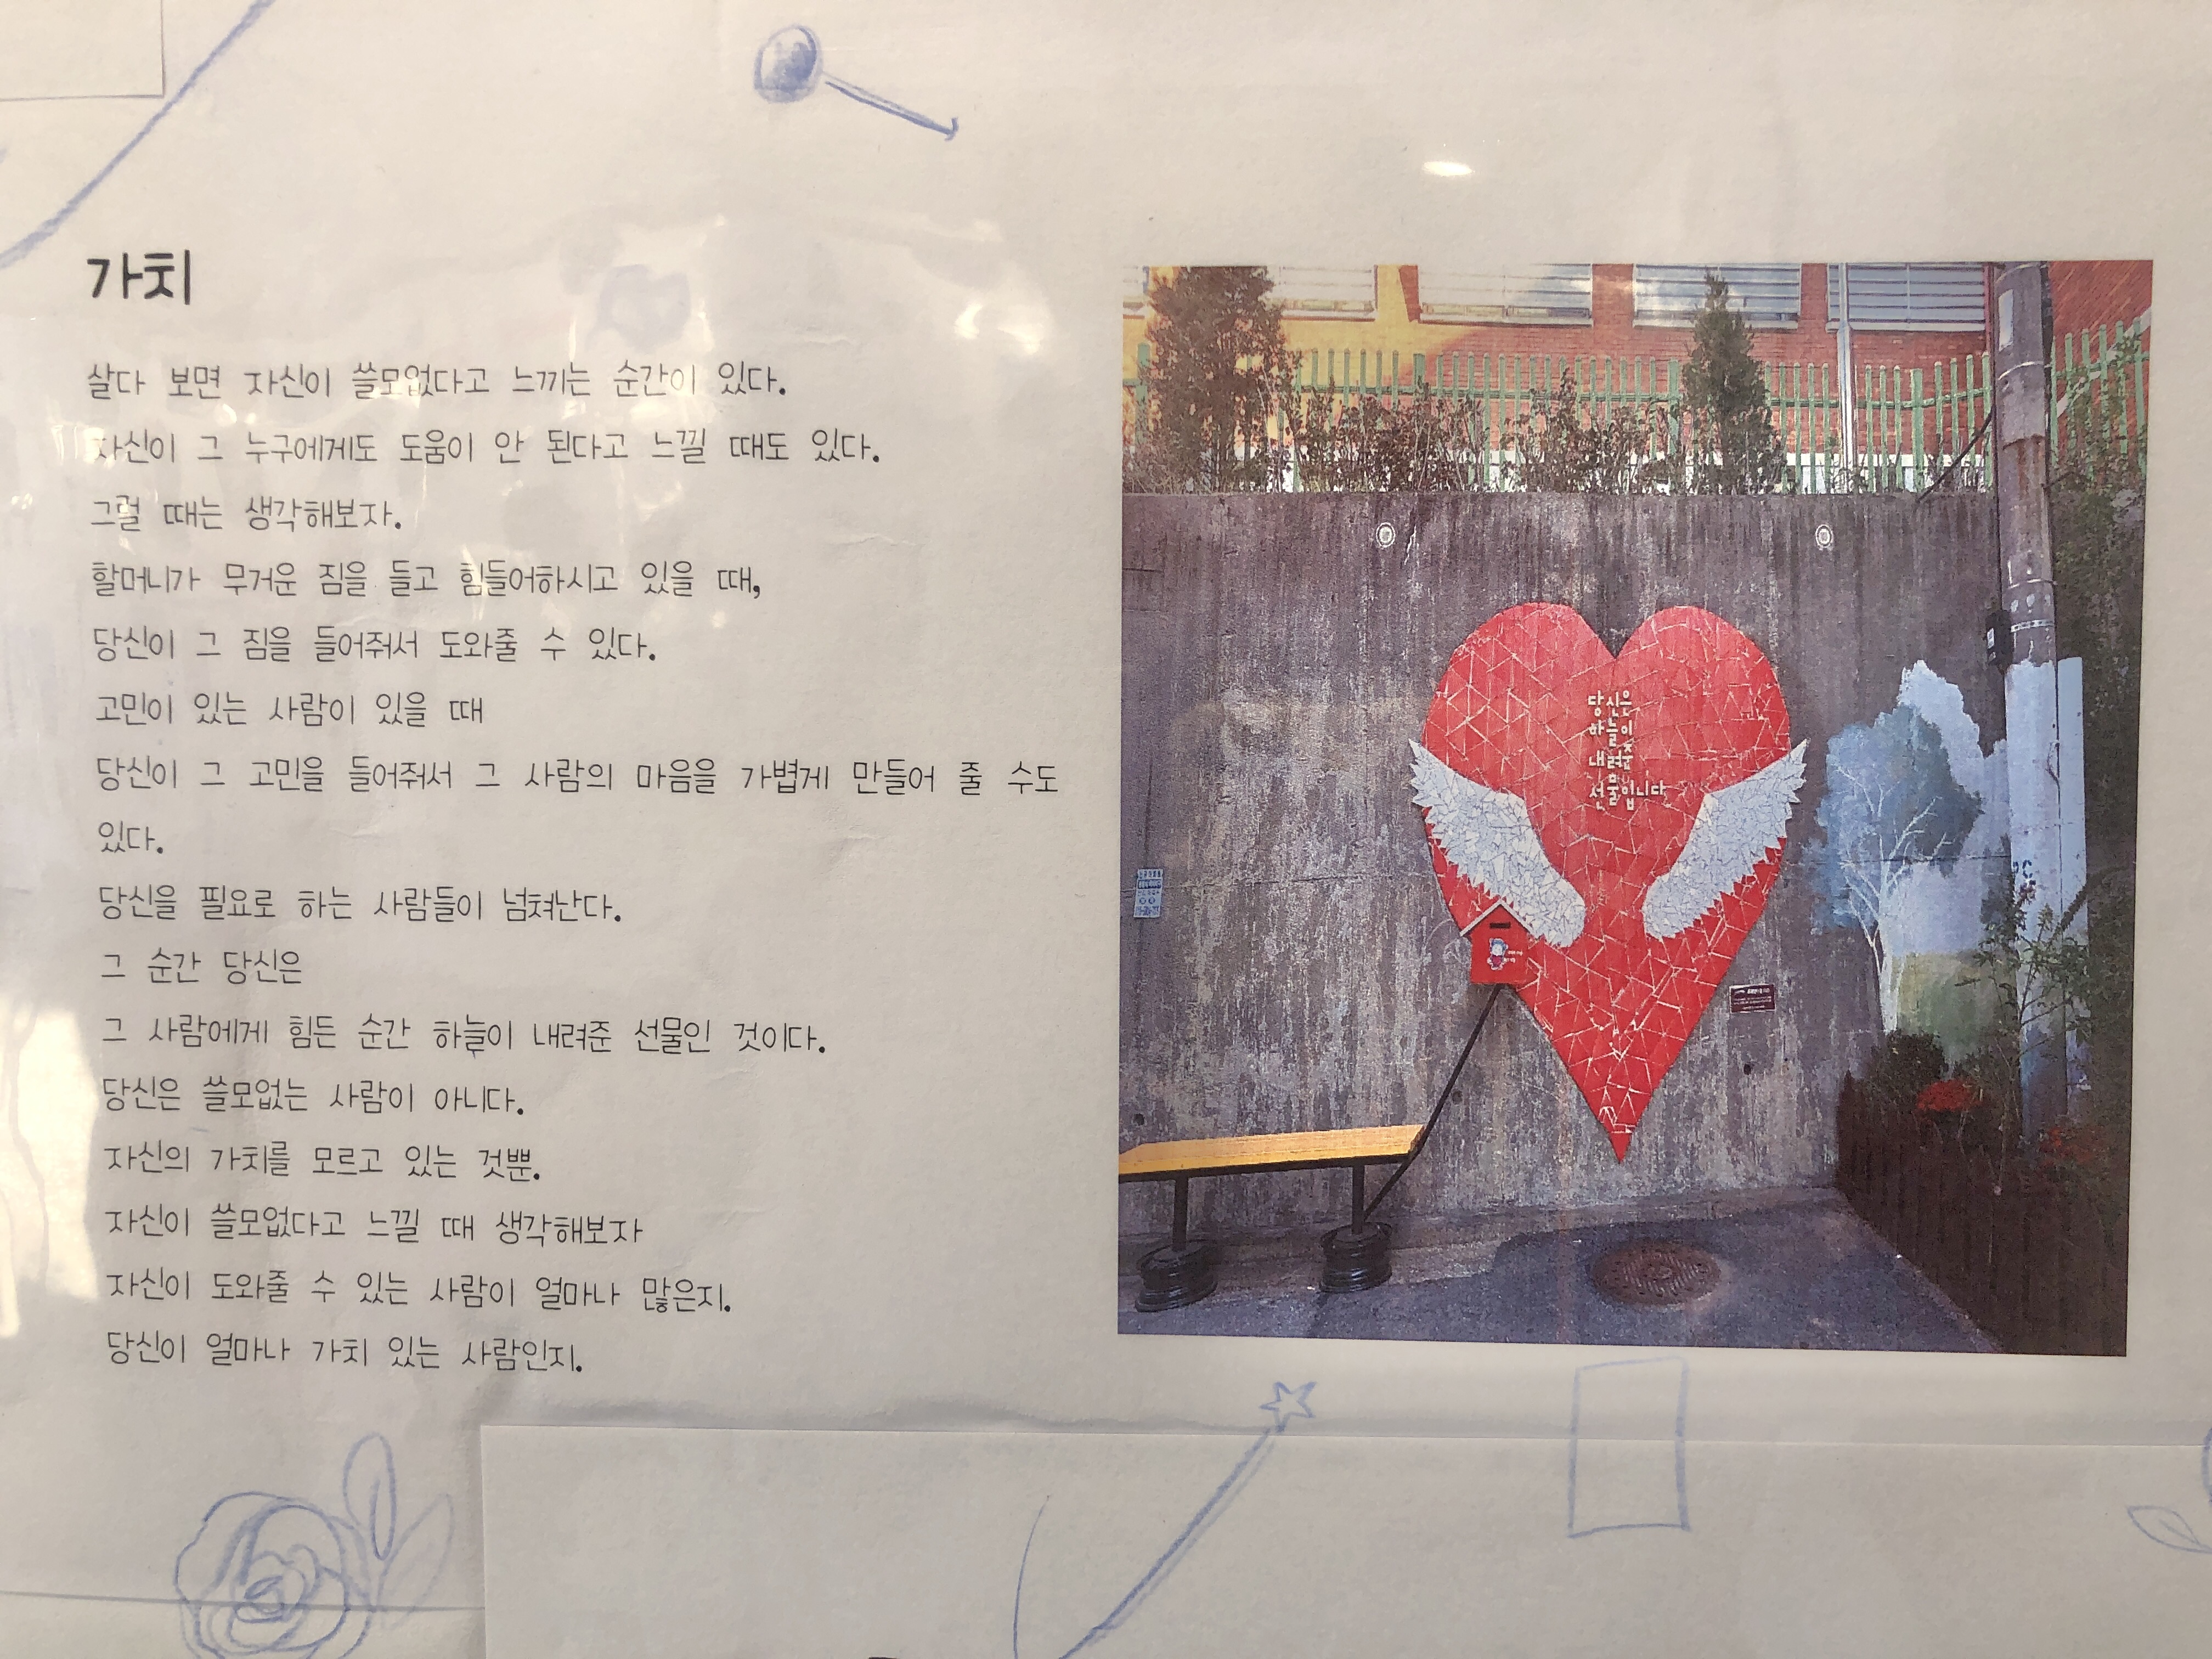 가치
살다 보면 자신이 쓸모없다고 느끼는 순간이 있다.
자신이 그 누구에게도 도움이 안 된다고 느낄 때도 있다.
그럴 때는 생각해보자.
할머니가 무거운 짐을 들고 힘들어하시고 있을 때,
당신이 그 짐을 들어줘서 도와줄 수 있다.
고민이 있는 사람이 있을 때
당신이 그 고민을 들어줘서 그 사람의 마음을 가볍게 만들어 줄 수도
있다.
당신을 필요로 하는 사람들이 넘쳐난다.
그 순간 당신은
그 사람에게 힘든 순간 하늘이 내려준 선물인 것이다.
당신은 쓸모없는 사람이 아니다.
자신의 가치를 모르고 있는 것뿐.
자신이 쓸모없다고 느낄 때 생각해보자
자신이 도와줄 수 있는 사람이 얼마나 많은지.
당신이 얼마나 가치 있는 사람인지.
당신은
하늘이
내려준
선물입니다